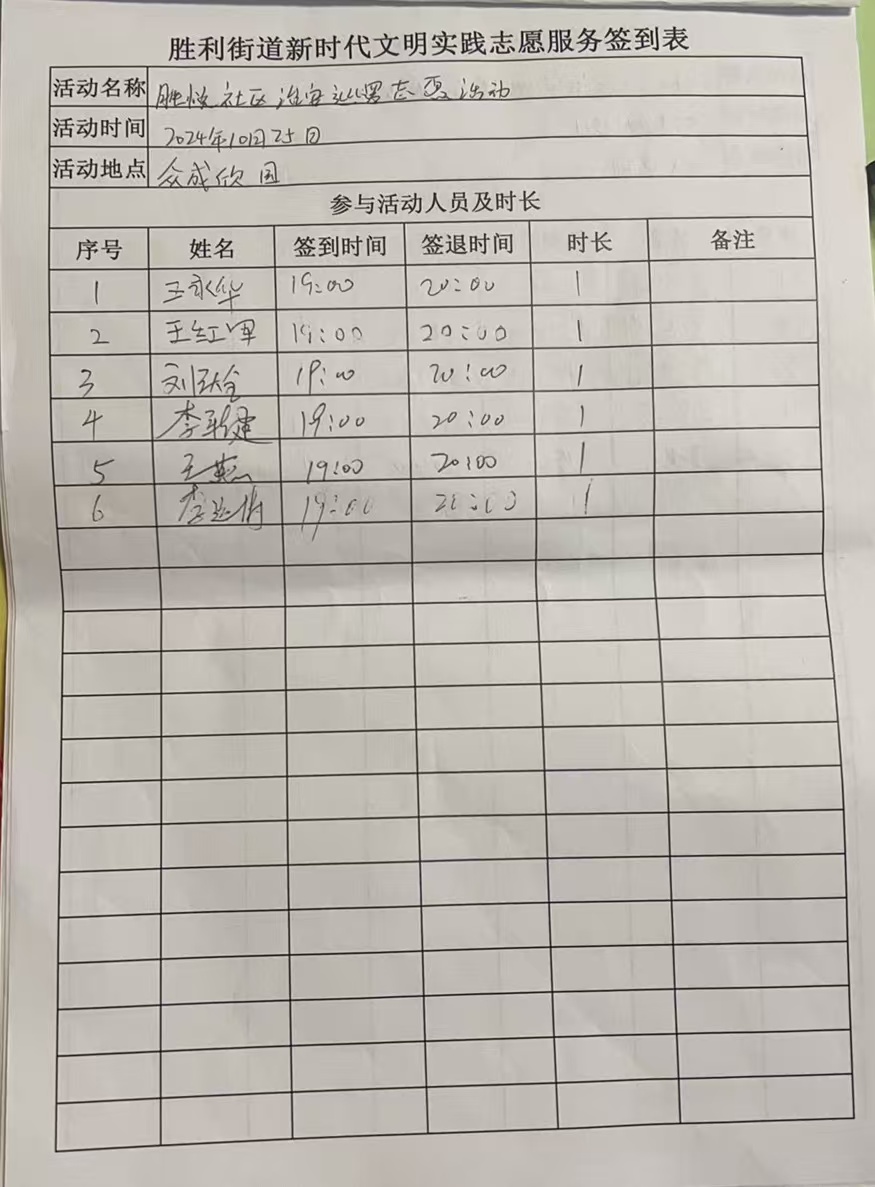 胜利街道新时代文明实践志愿服务签到表
活动名称 胜悦社区治安巡逻志愿活动
活动时间 2024年10月25日
活动地点 众成欣园
参与活动人员及时长
序号 姓名 签到时间 签退时间 时长 备注
1 王永华 19:00 20:00 1
2 王红军 19:00 20:00 1
3 刘 19:00 20:00 1
4 李 建 19:00 20:00 1
5 王燕 19:00 20:00 1
6 李 19:00 20:00 1